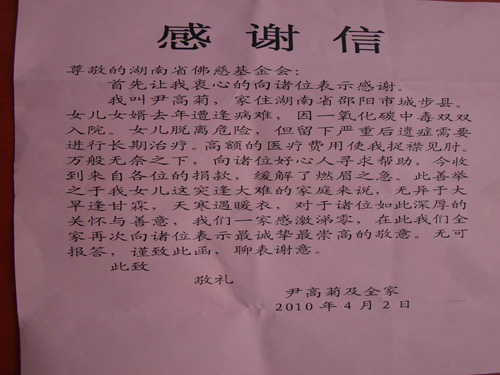 感谢信
尊敬的湖南省佛慈基金会：
首先让我衷心的向诸位表示感谢。
我叫尹高菊，家住湖南省邵阳市城步县。
女儿女婿去年遭逢病难，因一氧化碳中毒双双
入院。女儿脱离危险，但留下严重后遗症需要
进行长期治疗。高额的医疗费用使我捉襟见肘。
万般无奈之下，向诸位好心人寻求帮助，今收
到来自各位的捐款，缓解了燃眉之急。此善举
之于我女儿这突逢大难的家庭来说，无异于大
旱逢甘霖，天寒遇暖衣，对于诸位如此深厚的
关怀与善意，我们一家感激涕零，在此我们全
家再次向诸位表示最诚挚最崇高的敬意。无可
报答，谨致此函，聊表谢意。
此致
敬礼
尹高菊及全家
2010年4月2日